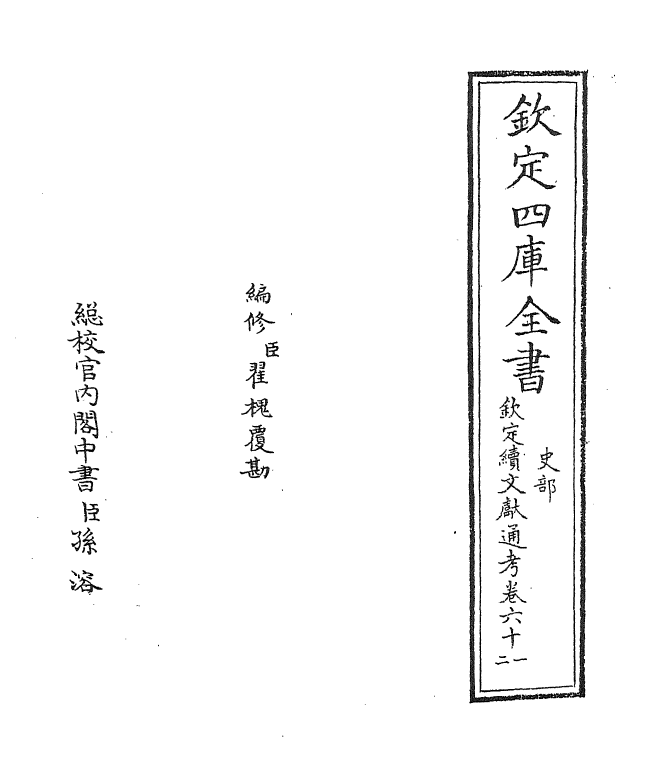 欽定四庫全書
史部
欽定續文獻通考卷六十一
二
編修臣翟槐覆勘
總校官內閣中書臣孫溶